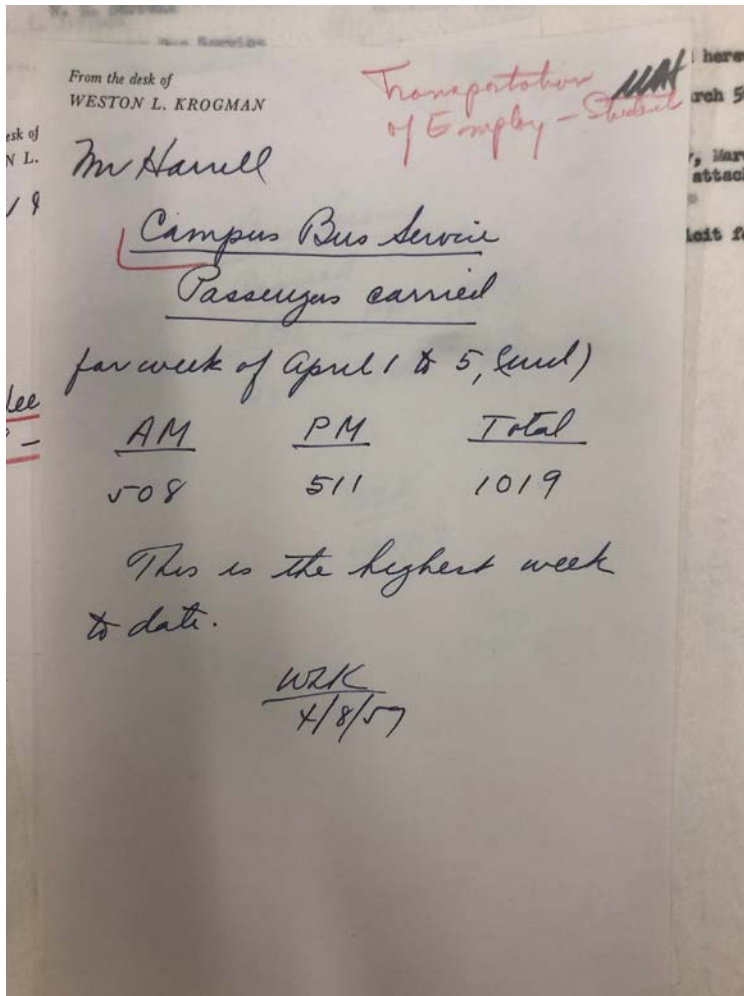 From the desk of
WESTON L. KROGMAN
Transportation
of Employ – Student
Mr Harrell
Campus Bus Service
Passengers carried
for week of April 1 to 5, (incl)
AM PM Total
508 511 1019
This is the highest week
to date.
WLK
4/8/57
esk of
N L.
lee
here
rch 5
, Mar
attac
icit f